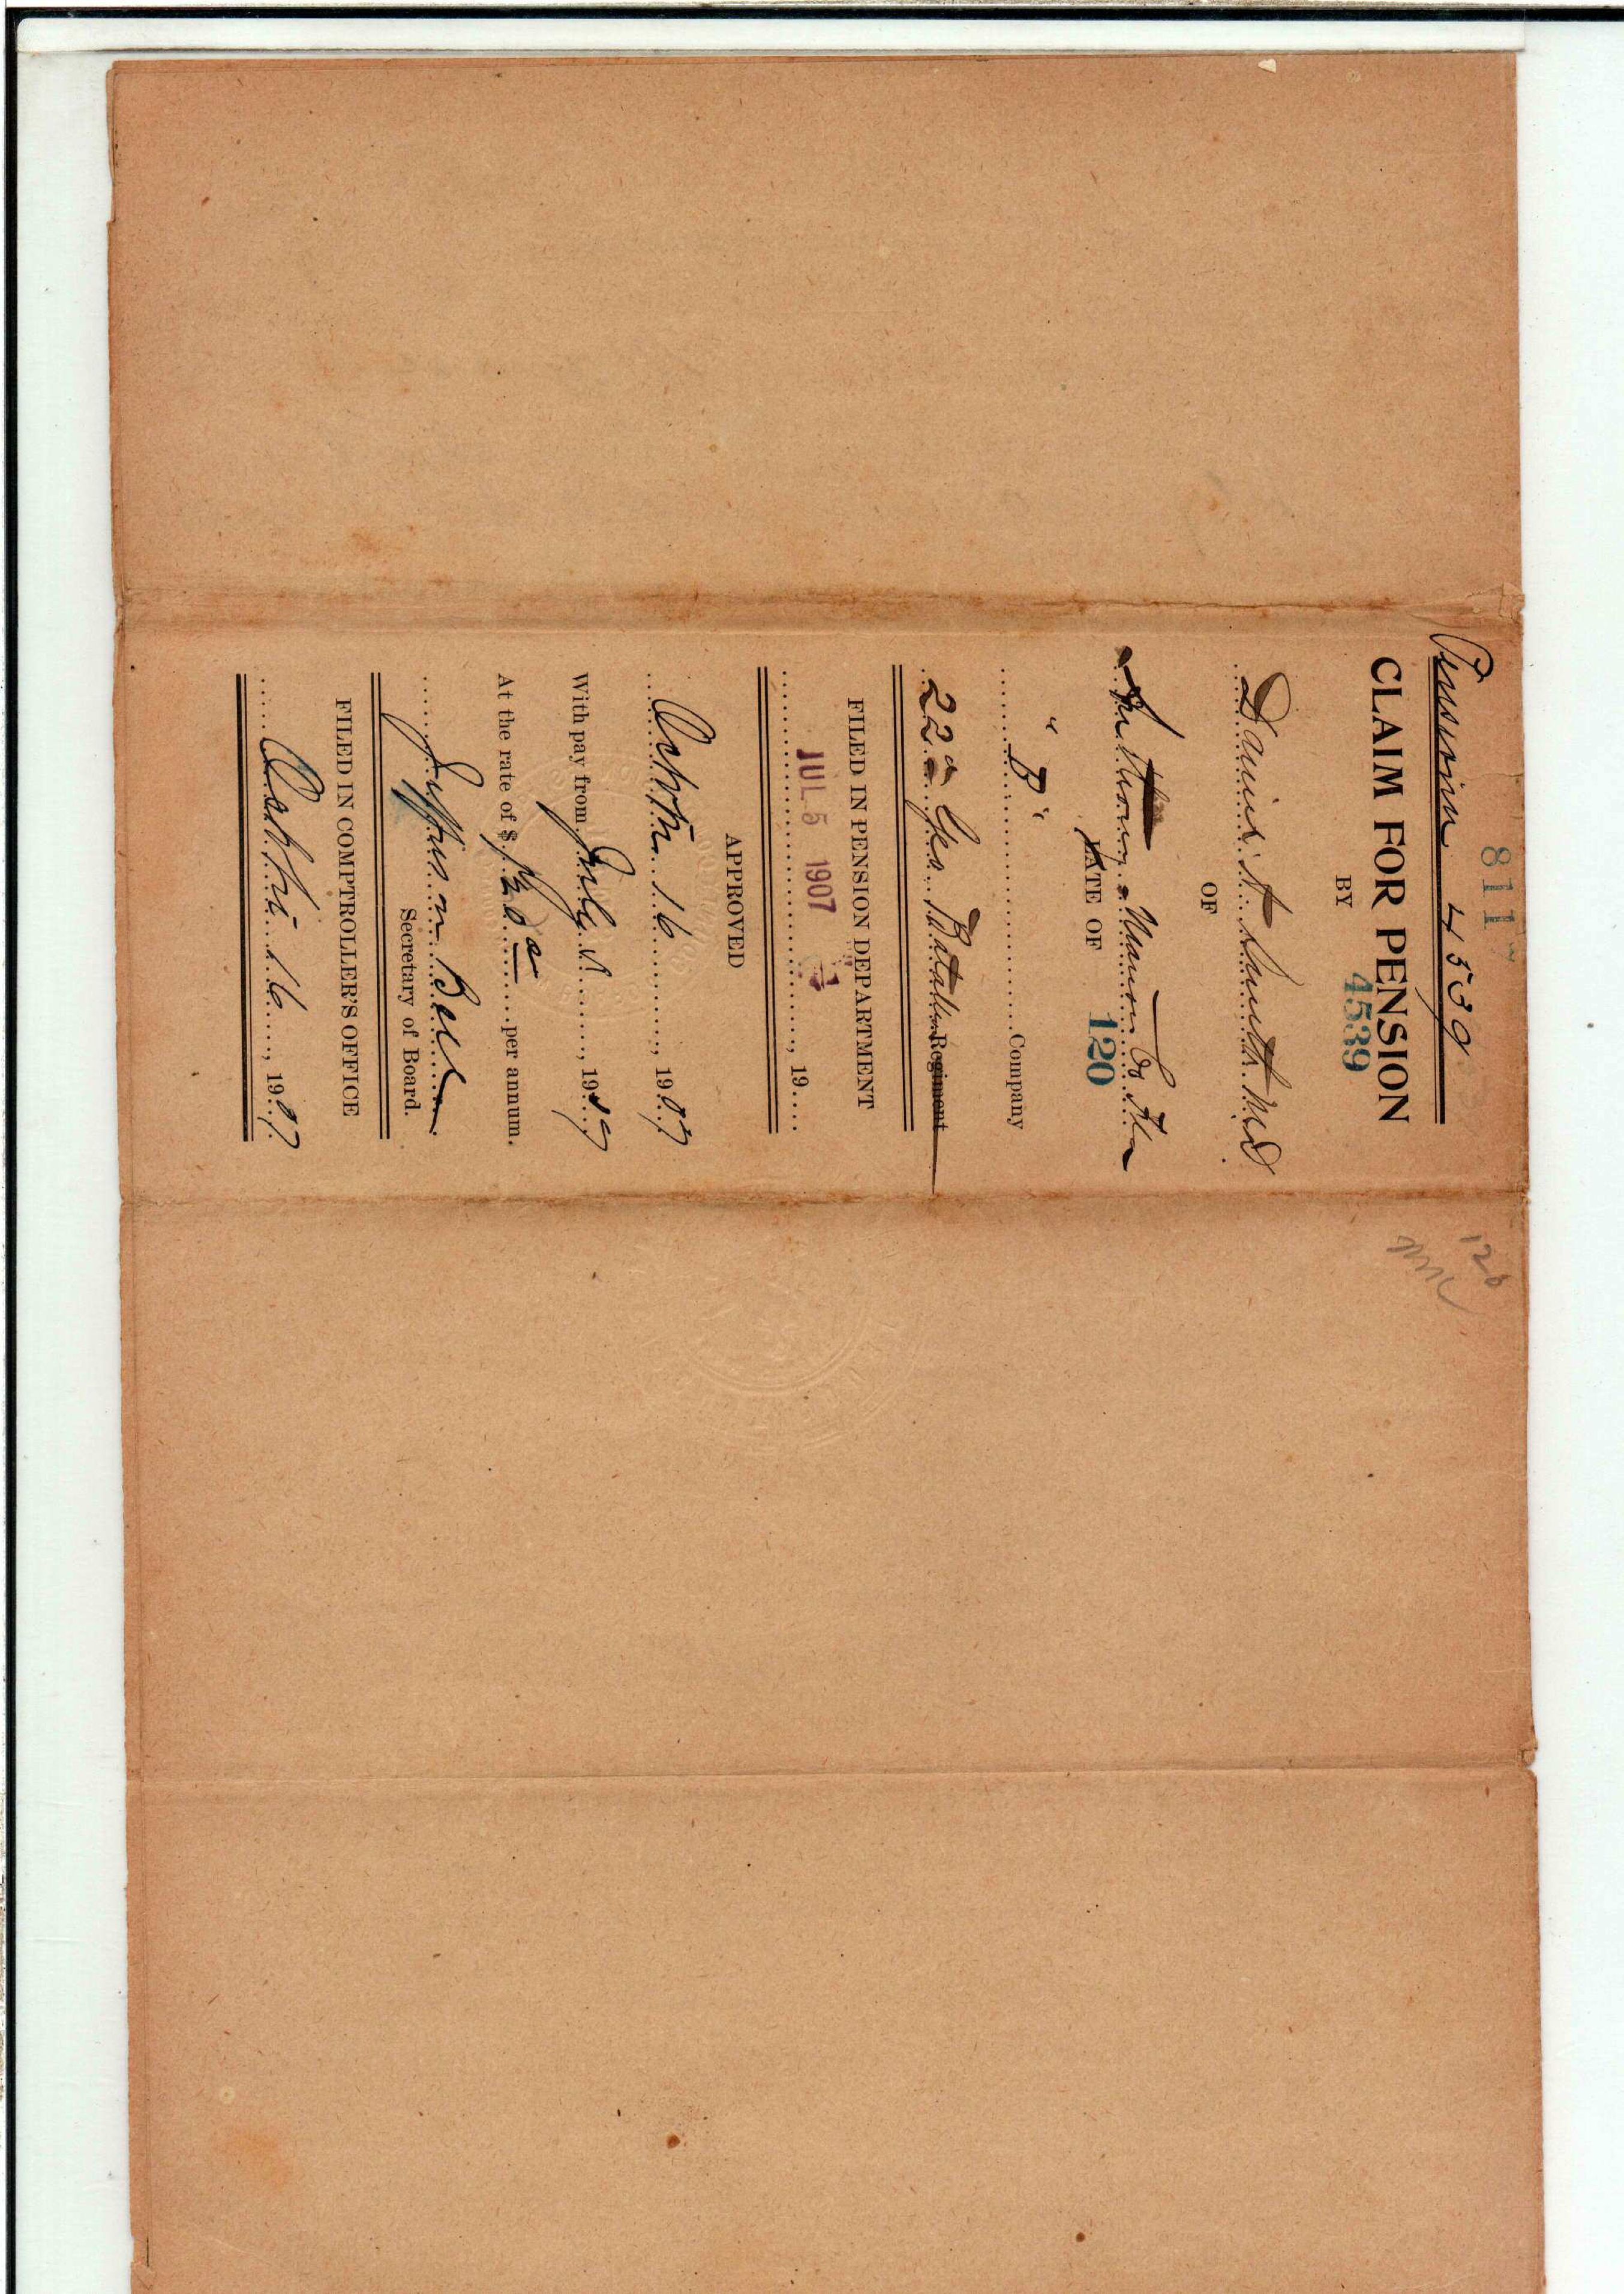 811
Pension 4539
CLAIM FOR PENSION
BY
4539
Daniel A Smith M.D
OF
Anthony, Marion Co Fla
LATE OF
120
"B" Company
22d Ga Battalion Regiment
FILED IN PENSION DEPARTMENT
JUL 5 1907
, 19
APPROVED
16, 1907
With pay from July 5, 1907
At the rate of $120 per annum.
Jefferson Bell
Secretary of Board.
FILED IN COMPTROLLER'S OFFICE
16, 1907
120